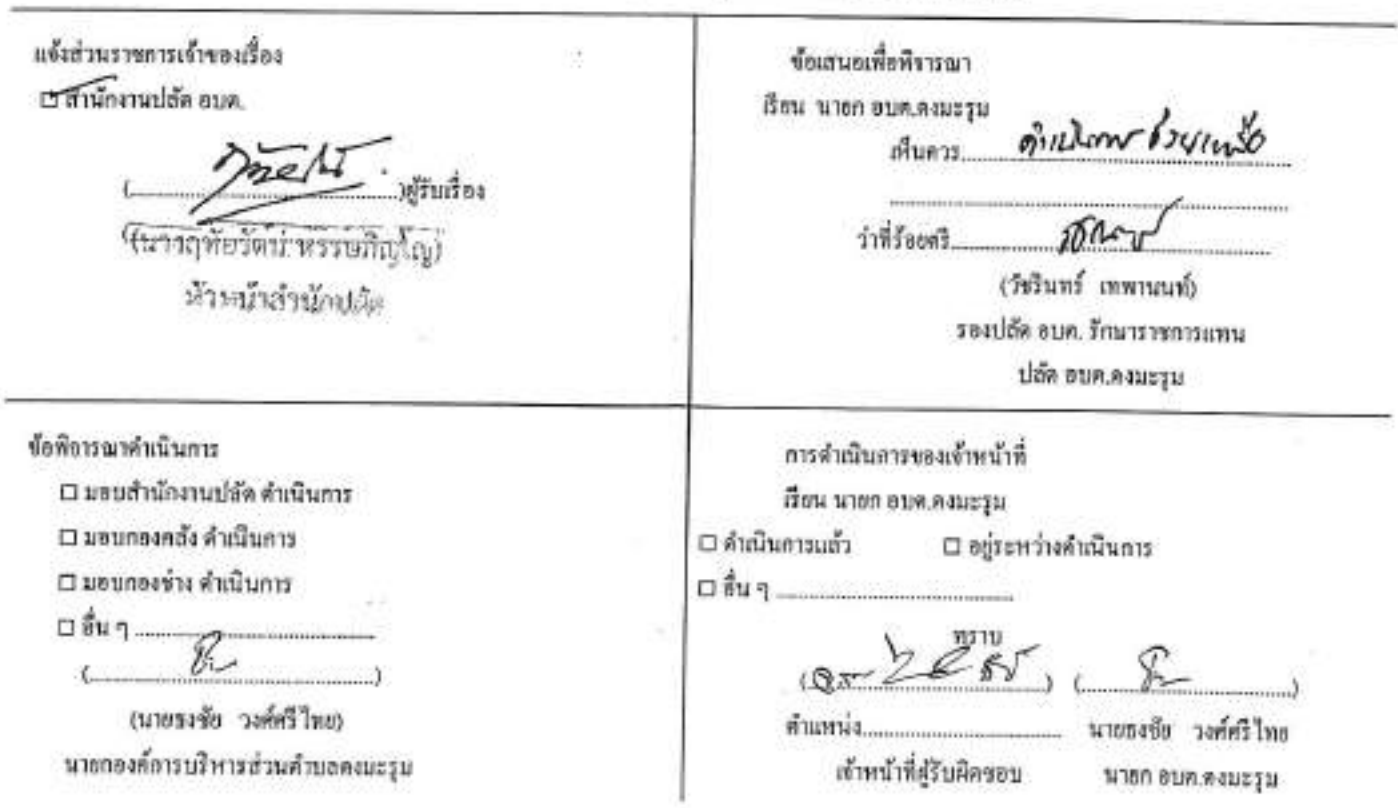 แจ้งส่วนราชการเจ้าของเรื่อง
☐ สำนักงานปลัด อบต.
(....................................)ผู้รับเรื่อง
(นางฤทัยวัฒน์ หรรษภิญโญ)
หัวหน้าสำนักปลัด
ข้อเสนอเพื่อพิจารณา
เรียน นายก อบต.ดงมะรุม
เห็นควร ดำเนินการช่วยเหลือ
ว่าที่ร้อยตรี....................................
(วัชรินทร์ เทพานนท์)
รองปลัด อบต. รักษาราชการแทน
ปลัด อบต.ดงมะรุม
ข้อพิจารณาดำเนินการ
☐ มอบสำนักงานปลัด ดำเนินการ
☐ มอบกองคลัง ดำเนินการ
☐ มอบกองช่าง ดำเนินการ
☐ อื่น ๆ ....................................
(....................................)
(นายธงชัย วงศ์ศรีไทย)
นายกองค์การบริหารส่วนตำบลดงมะรุม
การดำเนินการของเจ้าหน้าที่
เรียน นายก อบต.ดงมะรุม
☐ ดำเนินการแล้ว ☐ อยู่ระหว่างดำเนินการ
☐ อื่น ๆ ....................................
ทราบ
(....................................) (....................................)
ตำแหน่ง.................................... นายธงชัย วงศ์ศรีไทย
เจ้าหน้าที่ผู้รับผิดชอบ นายก อบต.ดงมะรุม